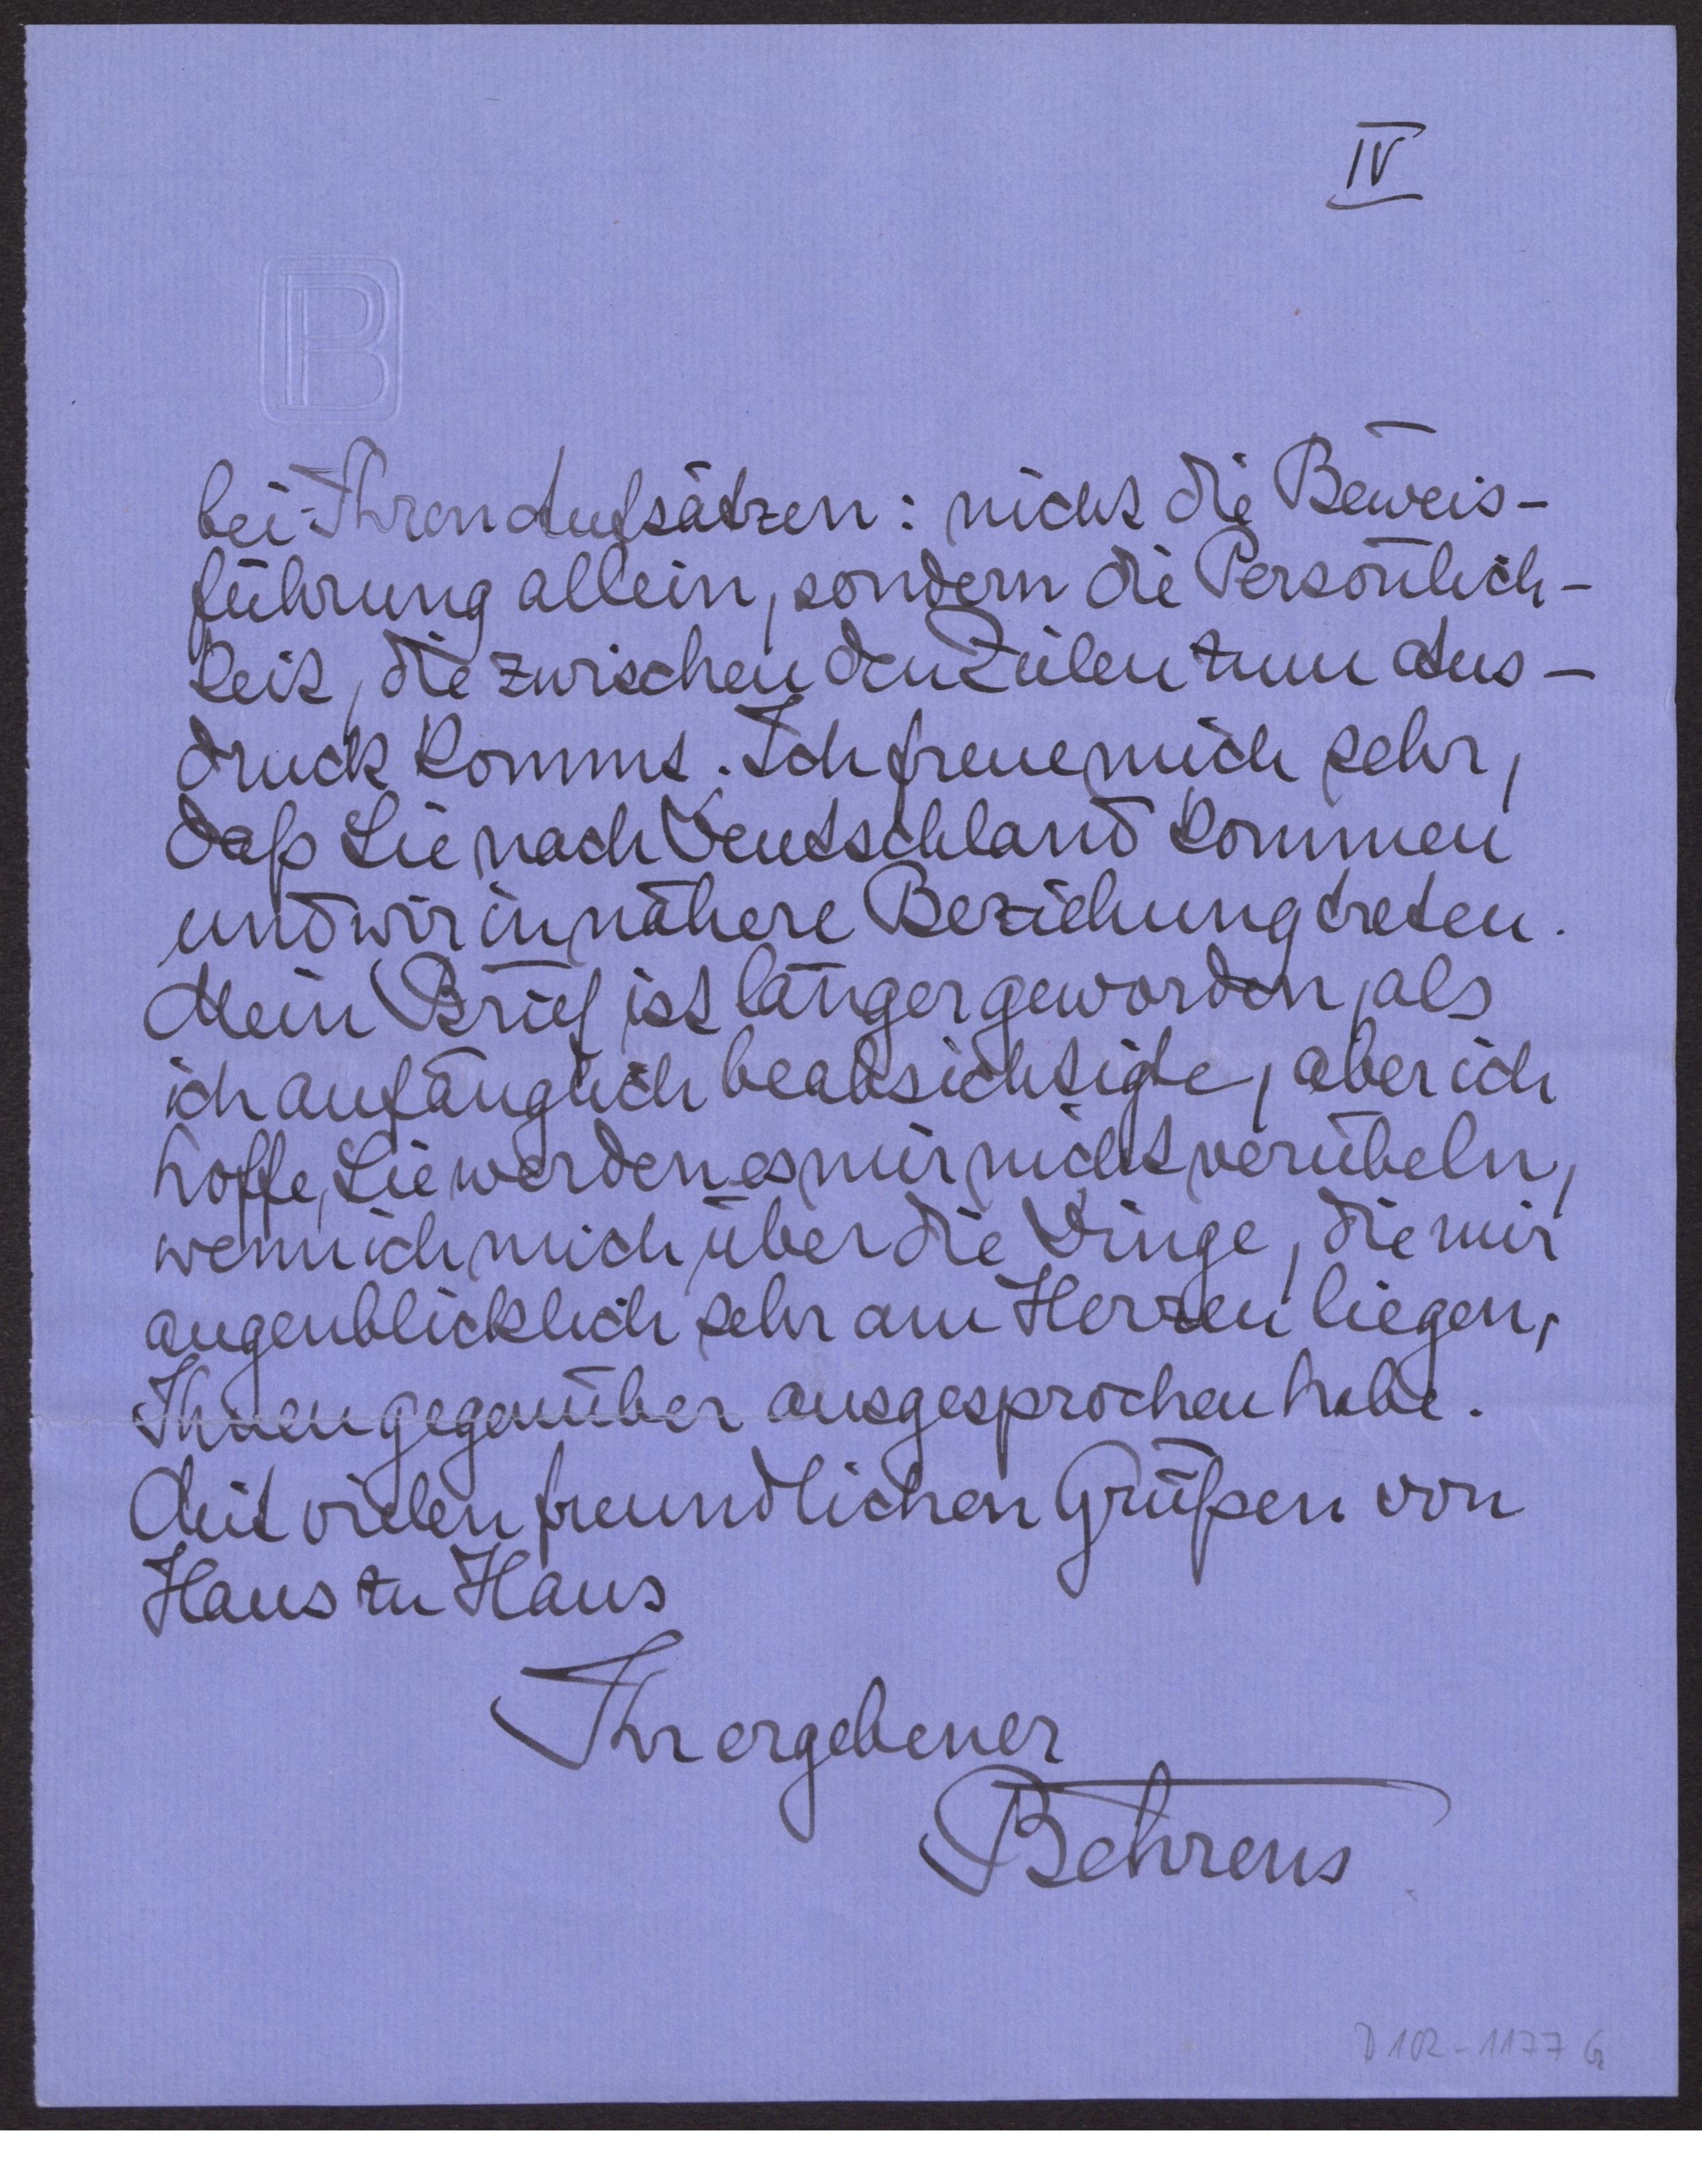 IV
PB
bei Ihren Aufsätzen: nicht die Beweis-
führung allein, sondern die Persönlich-
keit, die zwischen den Zeilen zum Aus-
druck kommt. Ich freue mich sehr,
daß Sie nach Deutschland kommen
und wir in nähere Beziehung treten.
Mein Brief ist länger geworden, als
ich anfänglich beabsichtigte, aber ich
hoffe, Sie werden es mir nicht verübeln,
wenn ich mich über die Dinge, die mir
augenblicklich sehr am Herzen liegen,
Ihnen gegenüber ausgesprochen habe.
Mit vielen freundlichen Grüßen von
Haus zu Haus
Ihr ergebener
Behrens
D 102-1177 G